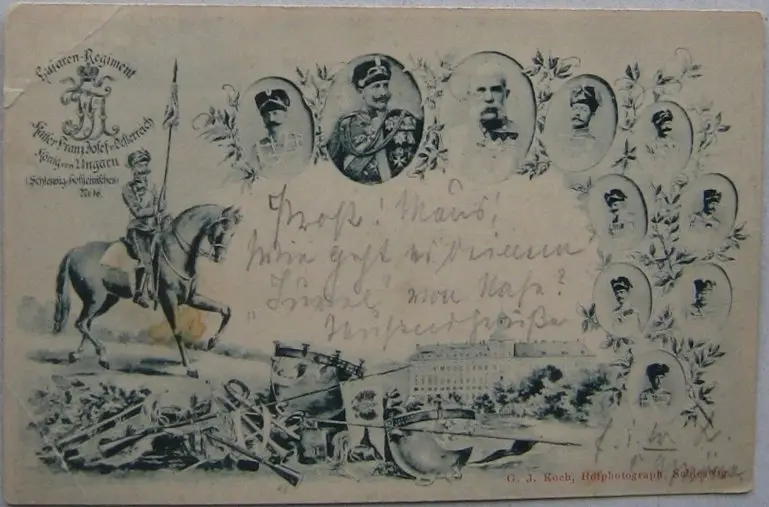 Husaren-Regiment
FJ
Kaiser Franz Josef v. Oesterreich
König von Ungarn
(Schleswig-Holsteinisches)
No 16.
Prost! Maus!
Wie geht es Deinem
" " von Nase?
Tausend Grüße
G. J. Koch, Hofphotograph, Schleswig